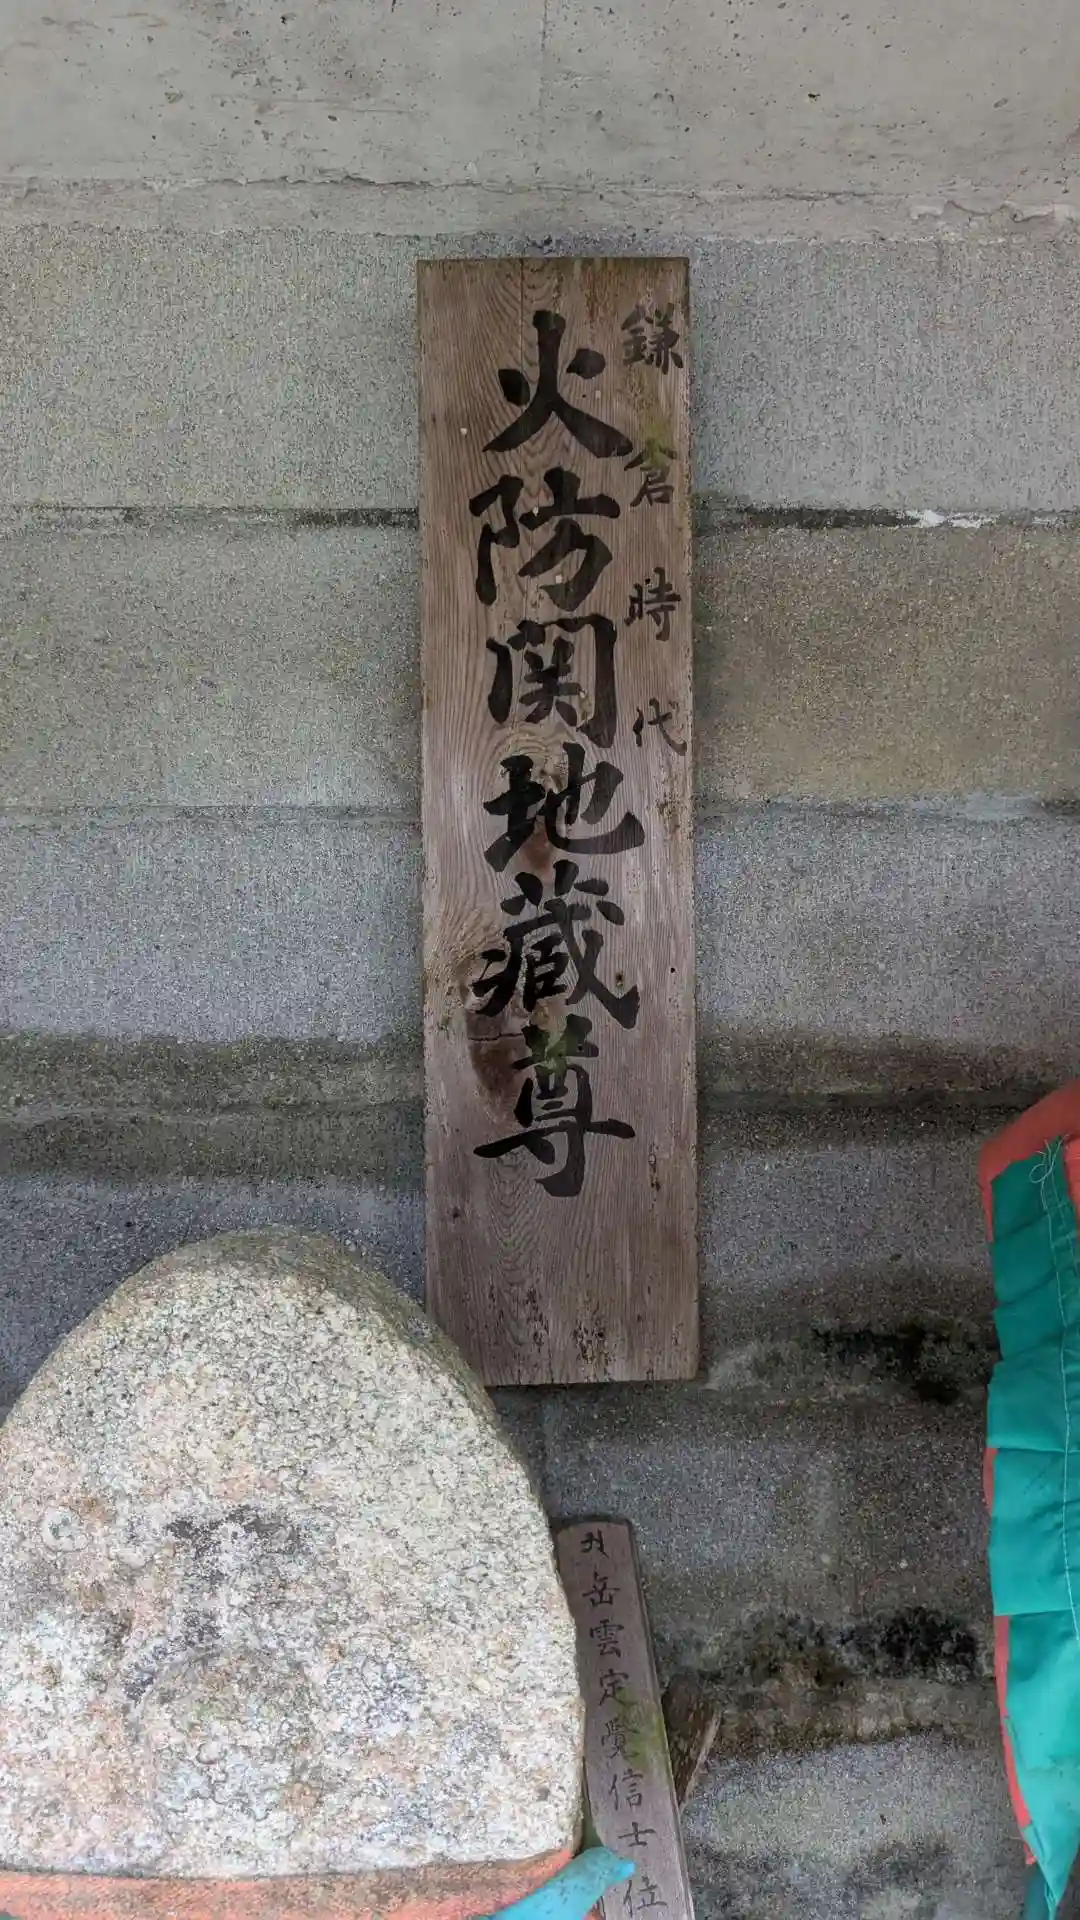 鎌倉時代
火防関地蔵尊
岳雲定覺信士位